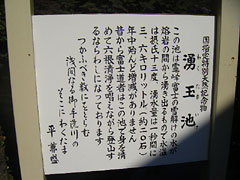 国指定特別天然記念物
湧玉池
この池は霊峰富士の雪解けの水が
溶岩の間から湧き出るもので水温
は摂氏十三度、湧水量は一秒間に
三、六キロリットル(約二〇石)
年中殆んど増減がありません
昔から富士道者はこの池で身を清
めて六根清浄を唱えながら登山す
るならわしになっております
つかふべき数にをとらむ
浅間なる御手洗川の
そこにわくたま
平兼盛